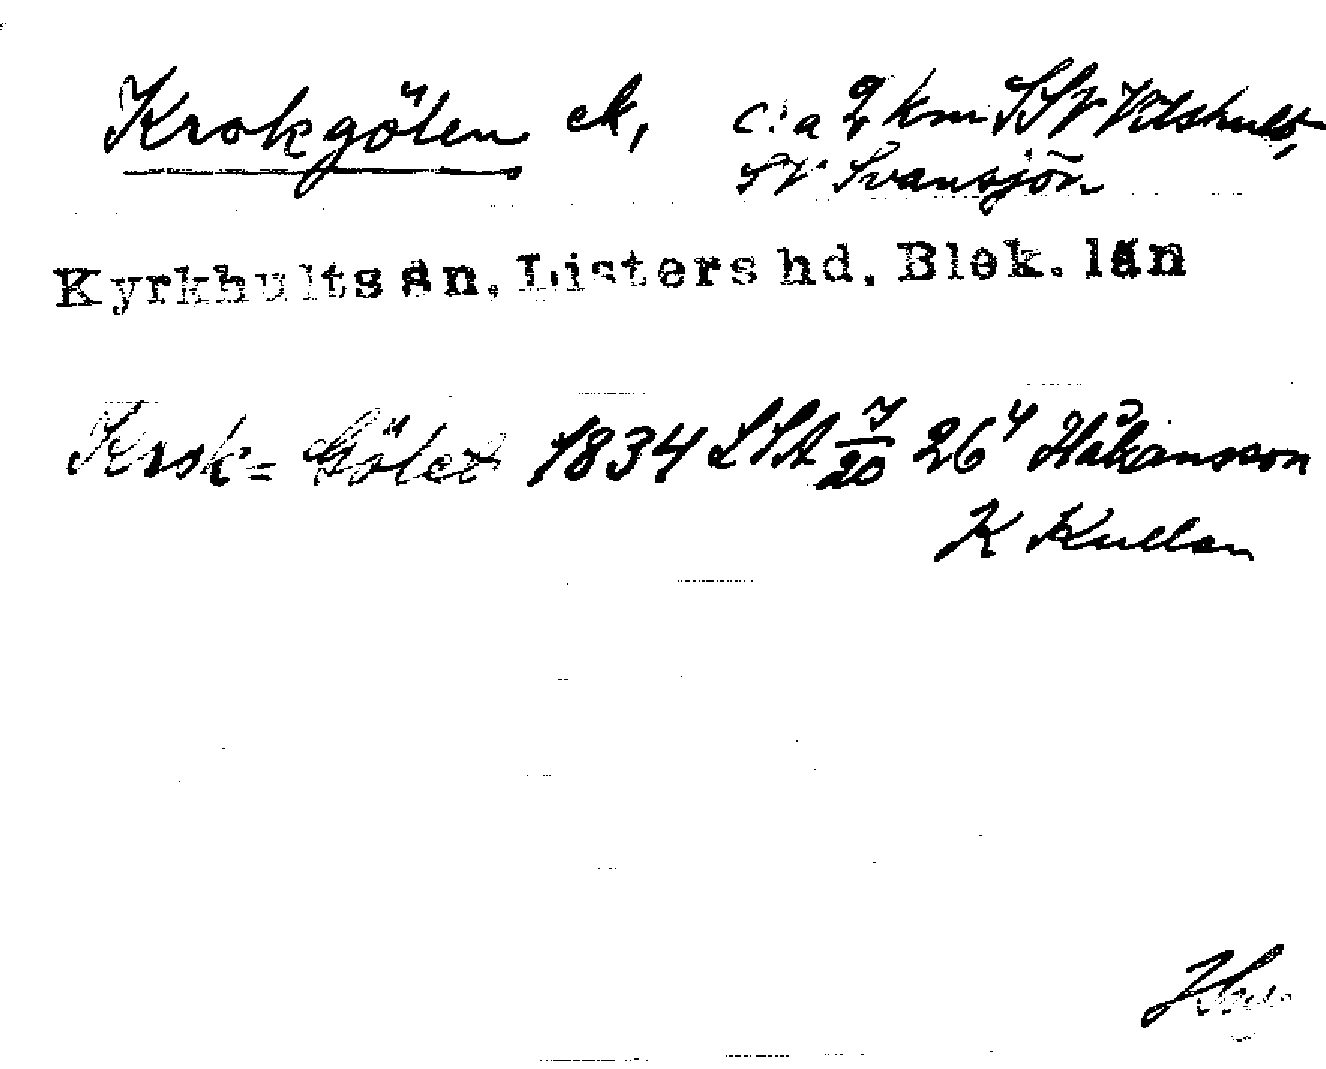 Krokgölen ek, c:a 2 km SSV Vilshult,
SV Svansjön
Kyrkhults sn. Listers hd. Blek. län
Krok= Gölet 1834 LSA 7/20 26⁴ Håkansson
K Kullen